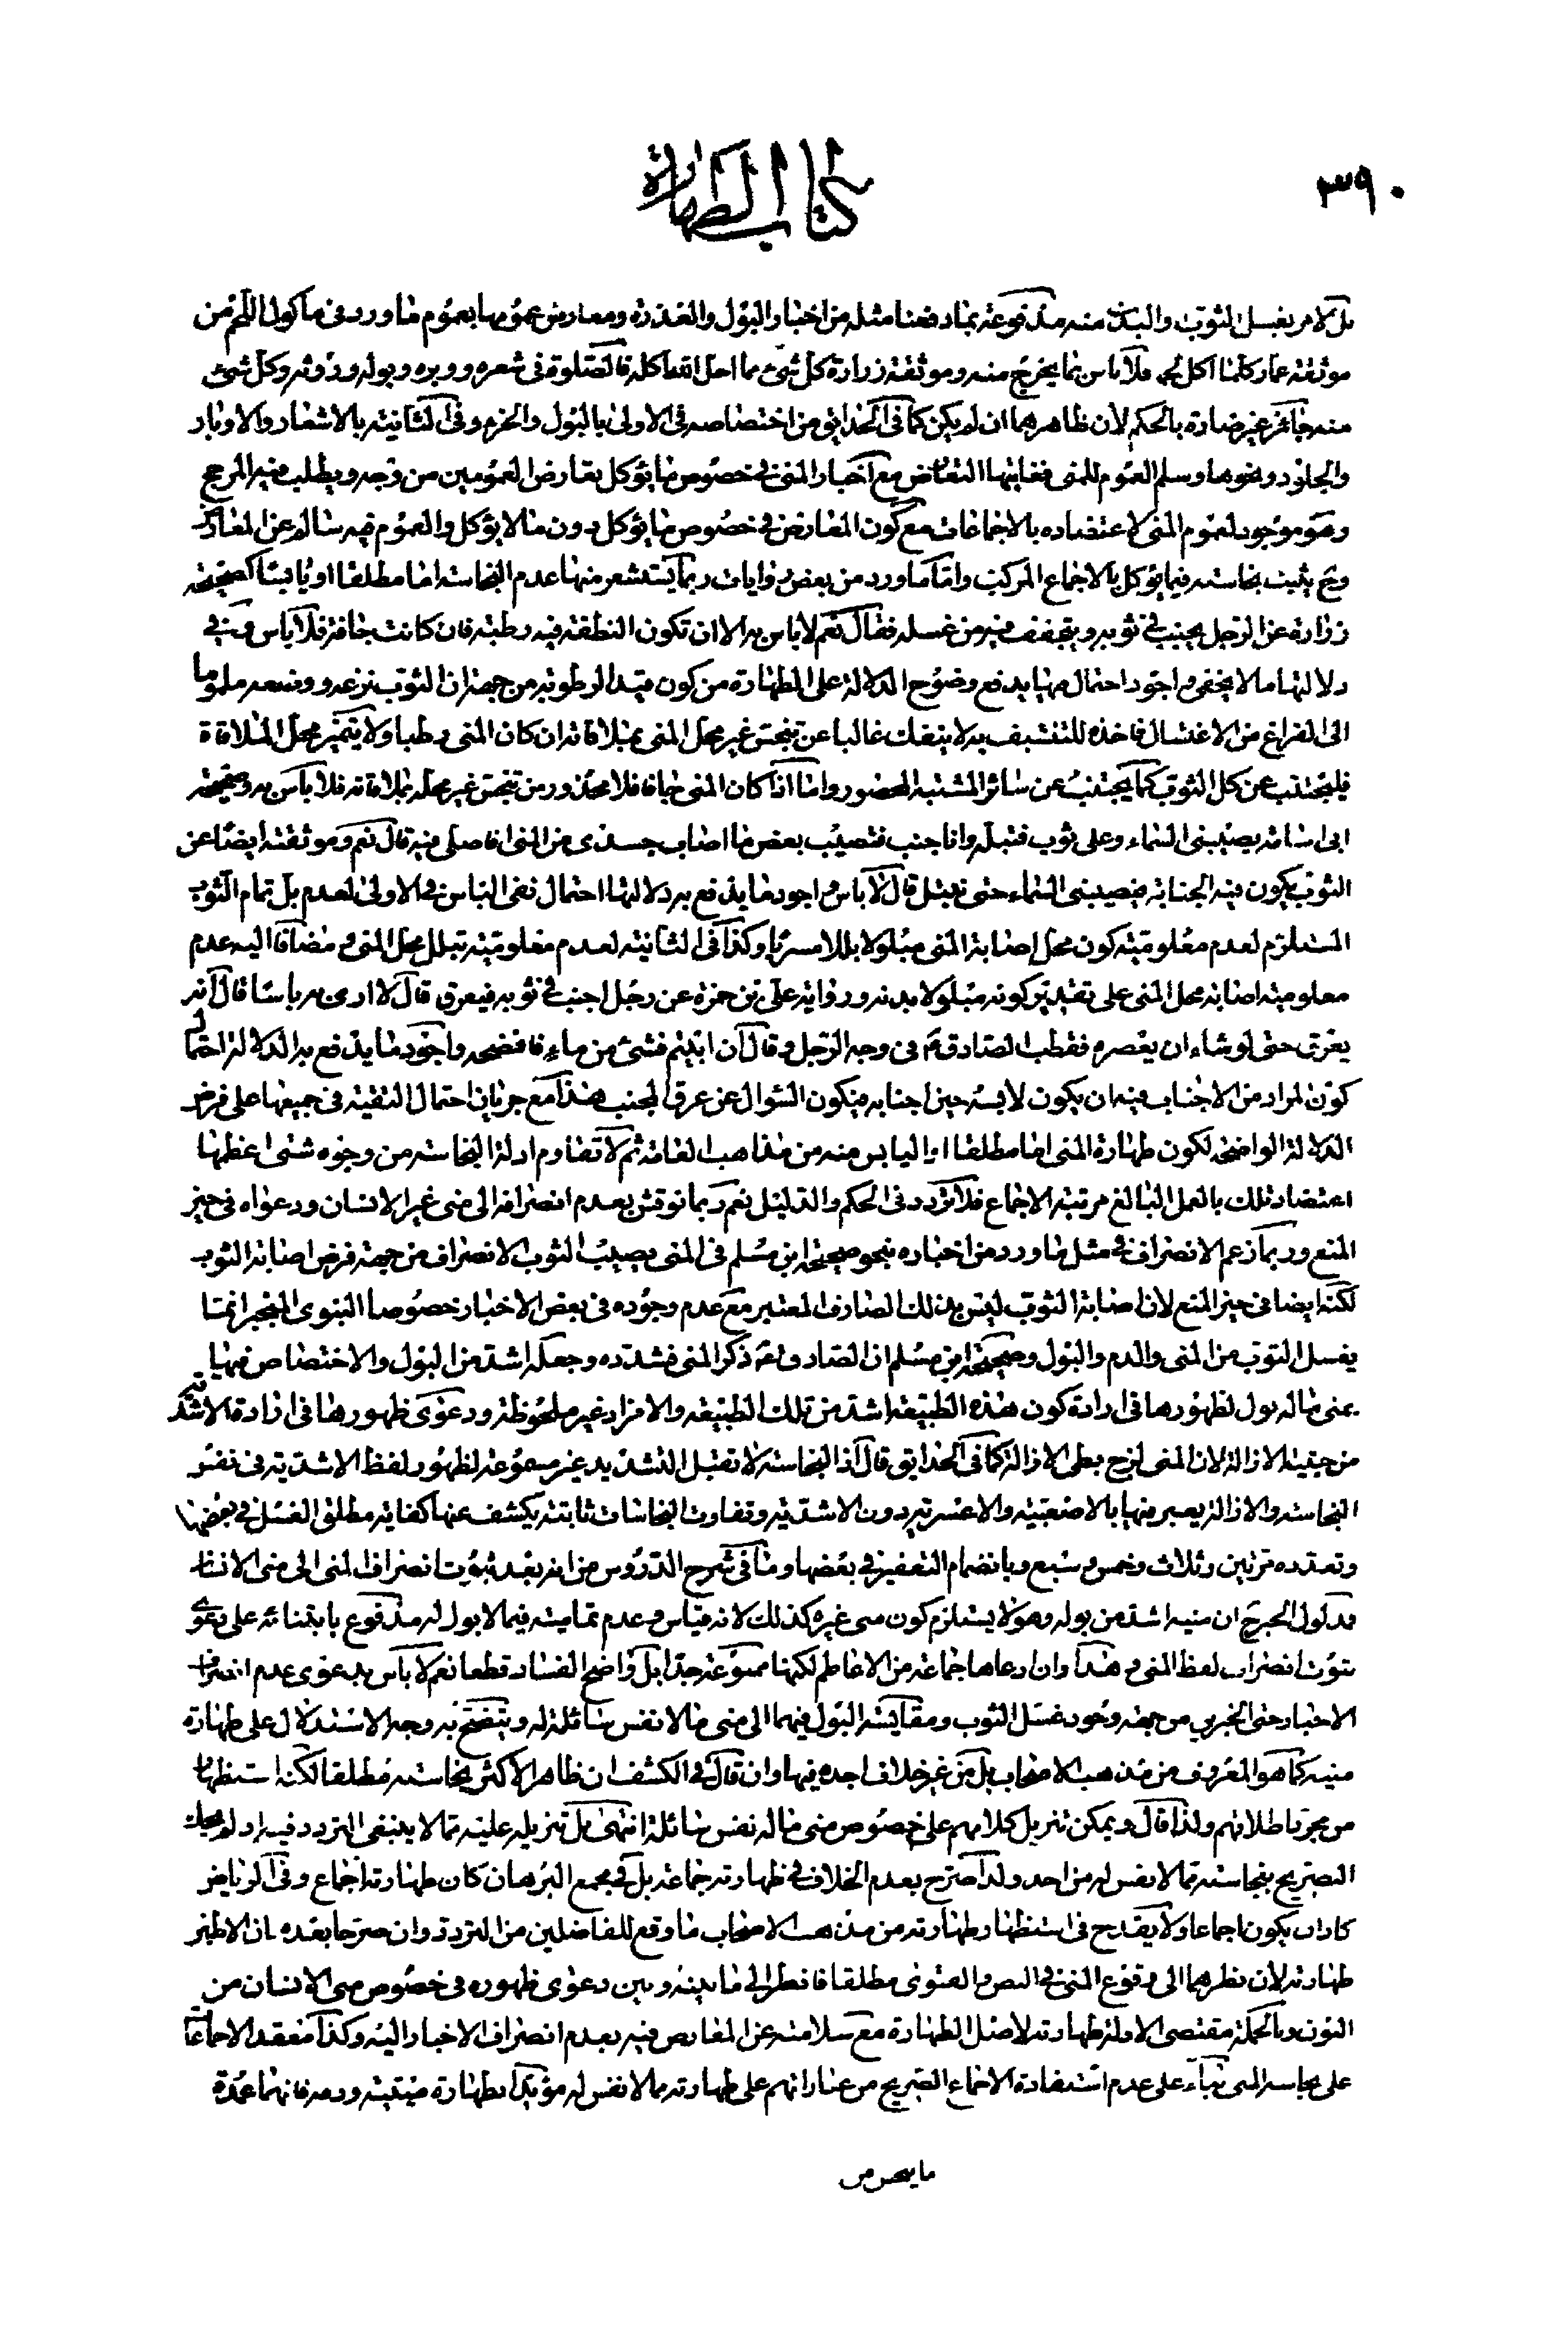 ٣٩٠
كتاب الطهارة
بل الامر بغسل الثوب والبدن منه مدفوعة بما دفعنا مثله من اخبار البول والعذرة ومعارض عمومها بعموم ما ورد في ماكول اللحم من
موثقة عمار كلما اكل لحمه فلا باس بما يخرج منه وموثقة زرارة كل شئ مما احل الله اكله فالصلوة في شعره ووبره وبوله وروثه وكل شئ
منه جائز غير ضارة بالحكم لان ظاهرهما ان لم يكن كما في الحدايق من اختصاصه في الاولى بالبول والخرء وفي الثانية بالاشعار والاوبار
والجلود ونحوها وسلم العموم للمنى فغايتها التعارض مع اخبار المنى في خصوص ما يؤكل تعارض العمومين من وجه ويطلب فيه المرجح
وهو موجود لعموم المنى لاعتضاده بالاجماعات مع كون المعارض في خصوص ما يؤكل دون ما لا يؤكل والعموم فيه سالم عن المعارض
وح يثبت نجاسته فيما يؤكل بالاجماع المركب واما ما ورد من بعض روايات ربما يستشعر منها عدم النجاسة اما مطلقا او يابسا كصحيحة
زرارة عن الرجل يجنب في ثوبه ويتجفف فيه من غسله فقال نعم لا باس به الا ان تكون النطفة فيه رطبة فان كانت جافة فلا باس وفي
دلالتها ما لا يخفى واجود احتمال فيها يدفع وضوح الدلالة على الطهارة من كون قيد الرطوبة من جهة ان الثوب نزعه ووضعه ملموما
الى الفراغ من الاغتسال فاخذه للتنشيف به لا ينفك غالبا عن تنجس غير محل المنى بملاقاته ان كان المنى رطبا ولا يتميز محل الملاقاة
فليجتنب عن كل الثوب كما يجتنب عن سائر المشتبه المحصور واما اذا كان المنى جافا فلا محذور من تنجس غير محله بملاقاته فلا باس به وصحيحة
ابي اسامة يصيبني السماء وعلى ثوب فتبله وانا جنب فتصيب بعض ما اصاب جسدي من المنى افاصلى فيه قال نعم وموثقته ايضا عن
الثوب يكون فيه الجنابة فيصيبني السماء حتى تبتل قال لا باس واجود ما يدفع به دلالتها احتمال نفى الباس في الاولى لعدم بل تمام الثوب
المستلزم لعدم معلومية كون محل اصابة المنى مبلولا بللا مسريا وكذا في الثانية لعدم معلومية تبلل محل المنى مضافا اليه عدم
معلومية اصابة محل المنى على تقدير كونه مبلولا بدنه ورواية على بن حمزة عن رجل اجنب في ثوبه فيعرق قال لا ارى به باسا قال انه
يعرق حتى لو شاء ان يعصره فقطب الصادق ع في وجه الرجل وقال ان ابيتم فشئ من ماء فانضحه واجود ما يدفع به الدلالة احتمال
كون المراد من الاجناب فيه ان يكون لابسه حين اجنابه فيكون السؤال عن عرق الجنب هذا مع جريان احتمال التقية في جميعها على فرض
الدلالة الواضحة لكون طهارة المنى اما مطلقا او اليابس منه من مذاهب العامة ثم لا تقاوم ادلة النجاسة من وجوه شتى اعظمها
اعتضاد تلك بالعمل البالغ مرتبة الاجماع فلا تردد في الحكم والدليل نعم ربما نوقش بعدم انصرافه الى منى غير الانسان ودعواه في حيز
المنع وربما زعم الانصراف في مثل ما ورد من اخباره نحو صحيحة ابن مسلم في المنى يصيب الثوب الانصراف من جهة فرض اصابة الثوب
لكنه ايضا في حيز المنع لان اصابة الثوب ليس بذلك الصارف المعتبر مع عدم وجوده في بعض الاخبار خصوصا النبوى المنجبر انما
يغسل الثوب من المنى والدم والبول وصحيحة ابن مسلم ان الصادق ع ذكر المنى فشدده وجعله اشد من البول والاختصاص فيها
بمنى ماله بول لظهورها في ارادة كون هذه الطبيعة اشد من تلك الطبيعة والافراد غير ملحوظة ودعوى ظهورها في ارادة الاشدية
من حيثية الازالة لان المنى لزج بطئ الازالة كما في الحدايق قال اذ النجاسة لا تقبل التشديد غير مسموعة لظهور لفظ الاشدية في نفس
النجاسة والازالة يعبر فيها بالاصعبية والاعسرية دون الاشدية وتفاوت النجاسات ثابتة يكشف عنها كفاية مطلق الغسل في بعضها
وتعدده مرتين وثلاث وخمس وسبع وبانضمام التعفير في بعضها وما في شرح الدروس من انه بعد ثبوت انصراف المنى الى منى الانسان
مدلول الخبر ح ان منيه اشد من بوله وهو لا يستلزم كون منى غيره كذلك لانه قياس وعدم تماميته فيما لا بول له مدفوع بابتنائه على دعوى
ثبوت انصراف لفظ المنى وهذا وان ادعاها جماعة من الاعاظم لكنها ممنوعة جدا بل واضح الفساد قطعا نعم لا باس بدعوى عدم انصراف
الاخبار حتى الخبرين من جهة وجود غسل الثوب ومقايسة البول فيهما الى منى ما لا نفس سائلة له ويتضح به وجه الاستدلال على طهارة
منيه كما هو المعروف من مذهب الاصحاب بل من غير خلاف اجده فيها وان قال في الكشف ان ظاهر الاكثر نجاسته مطلقا لكنه استظهار
من مجرد اطلاقهم ولذا قال ويمكن تنزيل كلامهم على خصوص منى ما له نفس سائلة انتهى بل تنزيله عليه مما لا ينبغى التردد فيه اذ لم يحك
التصريح بنجاسته مما لا نفس له من احد ولذا صرح بعدم الخلاف في طهارته جماعة بل في مجمع البرهان كان طهارته اجماع وفي الرياض
كاد ان يكون اجماعا ولا يقدح في استظهار طهارته من مذهب الاصحاب ما وقع للفاضلين من التردد وان صرحا بعده بان الاظهر
طهارته لان نظرهما الى وقوع المنى في النص والفتوى مطلقا فانظر الى ما بينه وبين دعوى ظهوره في خصوص منى الانسان من
البون وبالجملة مقتضى الادلة طهارته لاصل الطهارة مع سلامته عن المعارض فيه بعدم انصراف الاخبار اليه وكذا معقد الاجماعات
على نجاسة المنى بناء على عدم استفادة الاجماع الصريح من عباراتهم على طهارته مما لا نفس له مؤيدا بطهارة ميتته ودمه فانهما عمدة
ما ينجس من